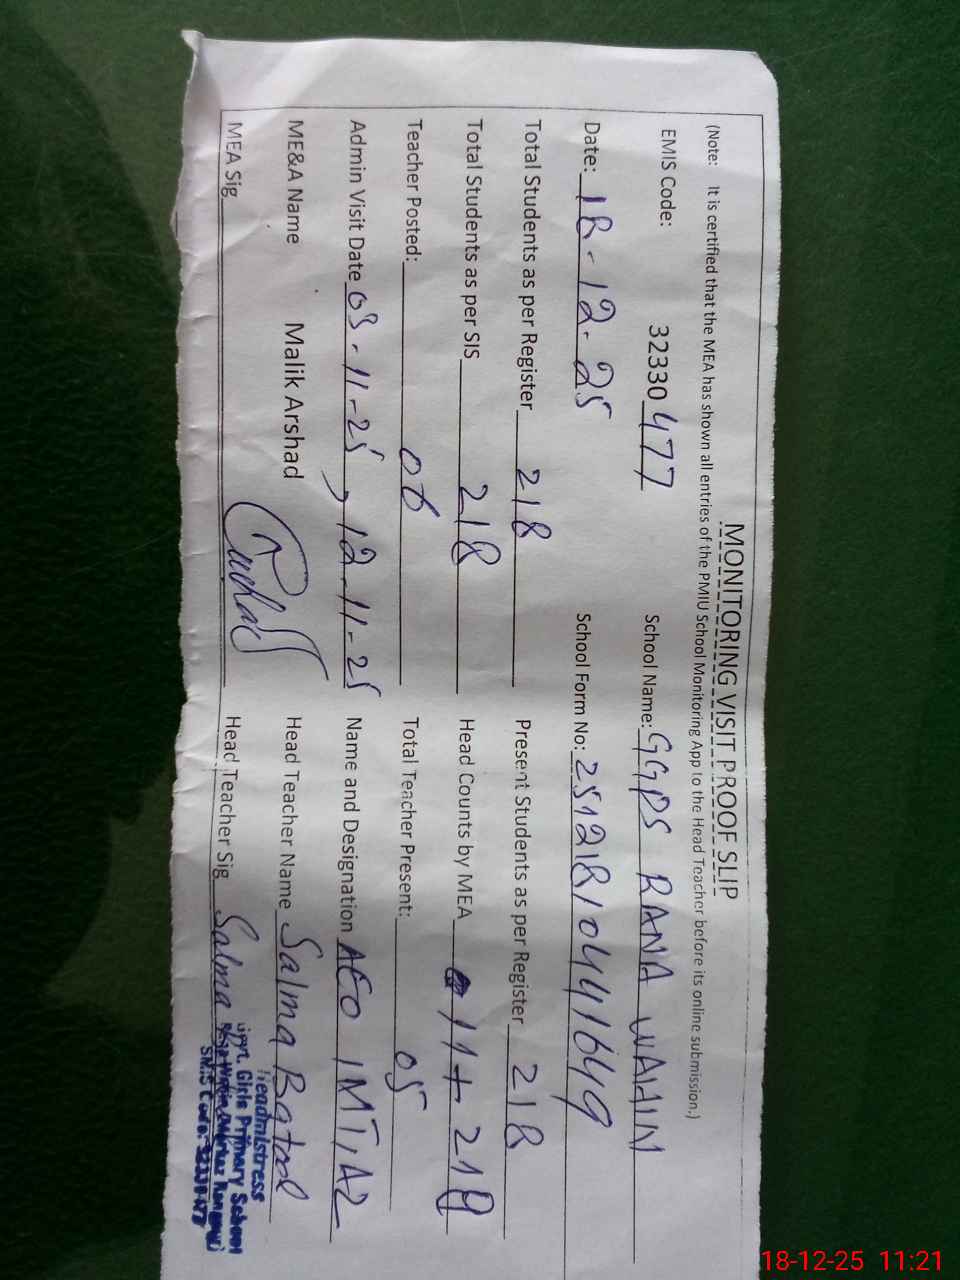 MONITORING VISIT PROOF SLIP
(Note: It is certified that the MEA has shown all entries of the PMIU School Monitoring App to the Head Teacher before its online submission.)
EMIS Code: 32330477 School Name: GGPS RANA WAHIN
Date: 18-12-25 School Form No: 251218104416649
Total Students as per Register 218 Present Students as per Register 218
Total Students as per SIS 218 Head Counts by MEA 11+218
Teacher Posted: 06 Total Teacher Present: 05
Admin Visit Date 03-11-25, 12-11-25 Name and Designation AEO IMTIAZ
ME&A Name Malik Arshad Head Teacher Name Salma Batool
MEA Sig Head Teacher Sig Salma
Headmistress
Govt. Girls Primary School
SMIS Code: 32330477
18-12-25 11:21